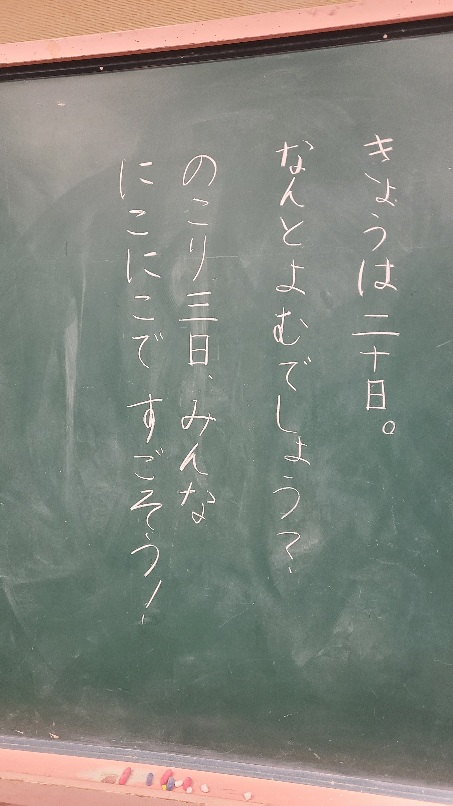 きょうは二十日。
なんとよむでしょう？
のこり三日、みんな
にこにこで すごそう！